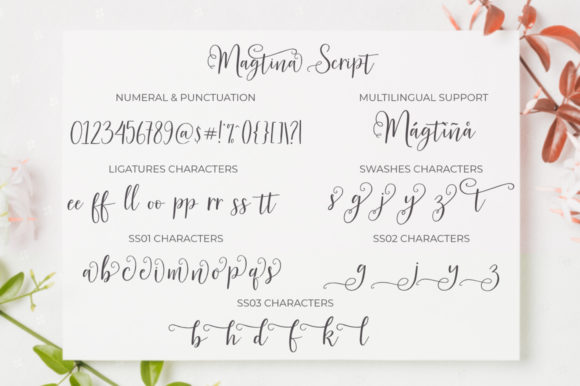 Magtina Script
NUMERAL & PUNCTUATION
MULTILINGUAL SUPPORT
0123456789@$#!'%^(){}[]\?|
Mágtîñå
LIGATURES CHARACTERS
SWASHES CHARACTERS
ee ff ll oo pp rr ss tt
s g j y z t
SS01 CHARACTERS
SS02 CHARACTERS
a b c e i m n o p q s
g j y z
SS03 CHARACTERS
b h d f k l